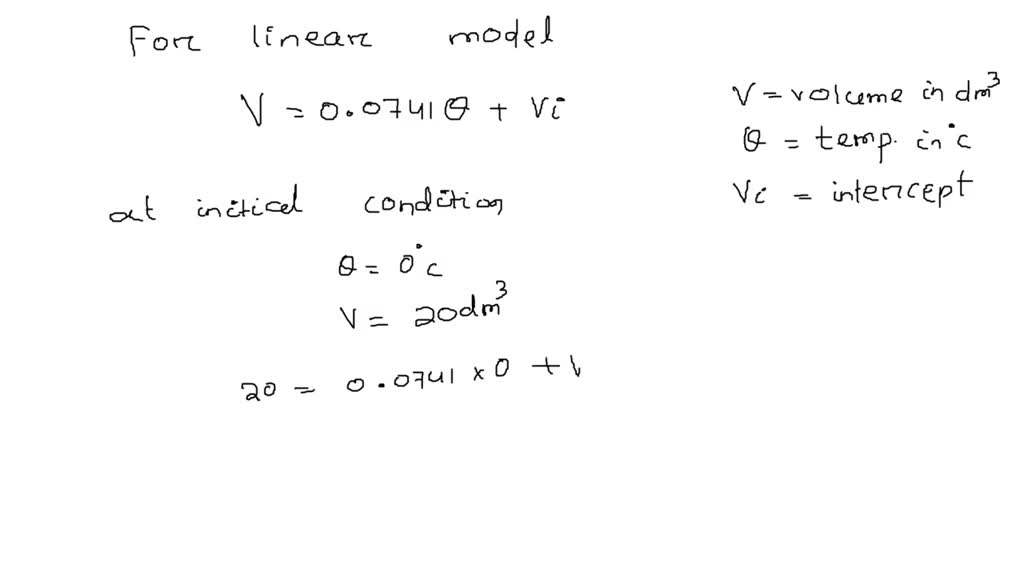 For linear model
V = 0.0741θ + Vi
V = volume in dm³
θ = temp. in °c
Vi = intercept
at initial condition
θ = 0°c
V = 20dm³
20 = 0.0741 × 0 +